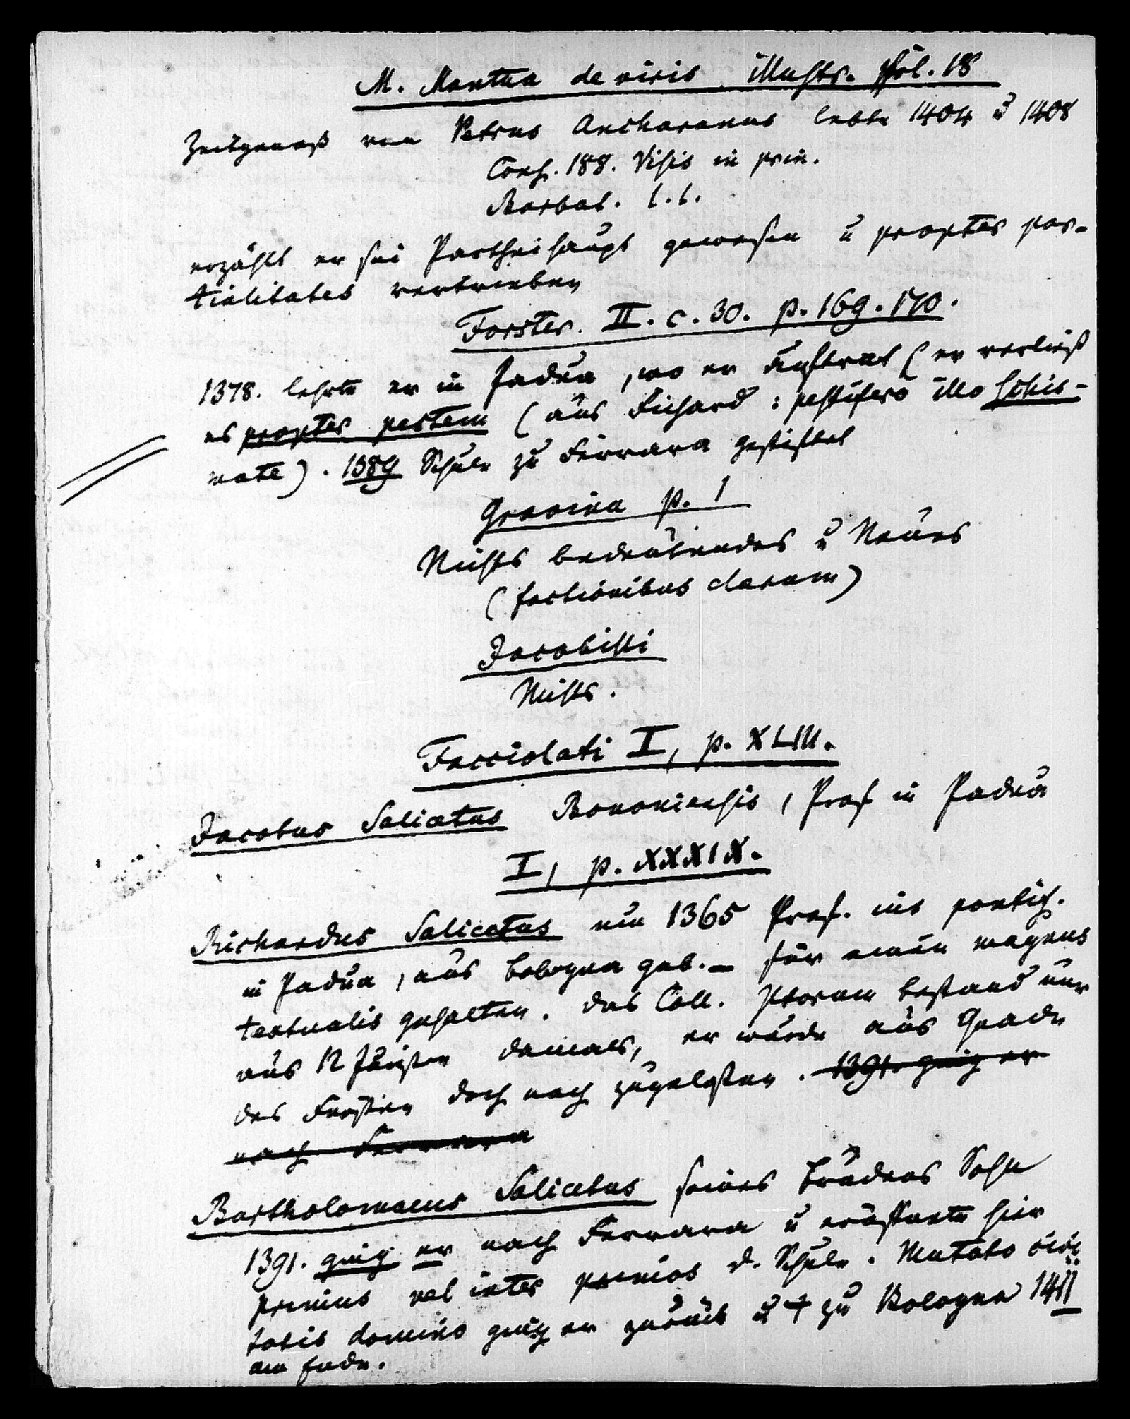 M. Mantua de viris illustr. fol. 18
Zeitgenoß von Petrus Ancharanus lebte 1404 u 1408
Cons. 188. Visis in prin.
Barbat. l. l.
erzählt er sei Partheihaupt gewesen u propter par-
tialitates vertrieben
Forster. II. c. 30. p. 169. 170.
1378. lehrte er in Padua, wo er auftrat (er verließ
es propter pestem (aus Richard: pestifero illo schis-
mate). 1389 Schule zu Ferrara gestiftet
Gravina p. 1
Nichts bedeutendes u Neues
(factionibus clarum)
Jacobilli
Nichts.
Facciolati I, p. XLIII.
Jacobus Salicetus Bononiensis, Prof in Padua
I, p. XXXIX.
Richardus Salicetus um 1365 Prof. iuris pontif.
in Padua, aus Bologna geb. – für einen magnus
textualis gehalten. Das Coll. Ptorum bestand nur
aus 12 Juristen damals, er wurde aus Gnade
des Fürsten doch noch zugelassen. 1391. ging er
nach Ferrara
Bartholomaeus Salicetus seines Bruders Sohn
1391. ging er nach Ferrara u eröffnete hier
primus vel inter primos d. Schule. Mutato
loci domino ging er zurück u † zu Bologna 1411
am Ende.